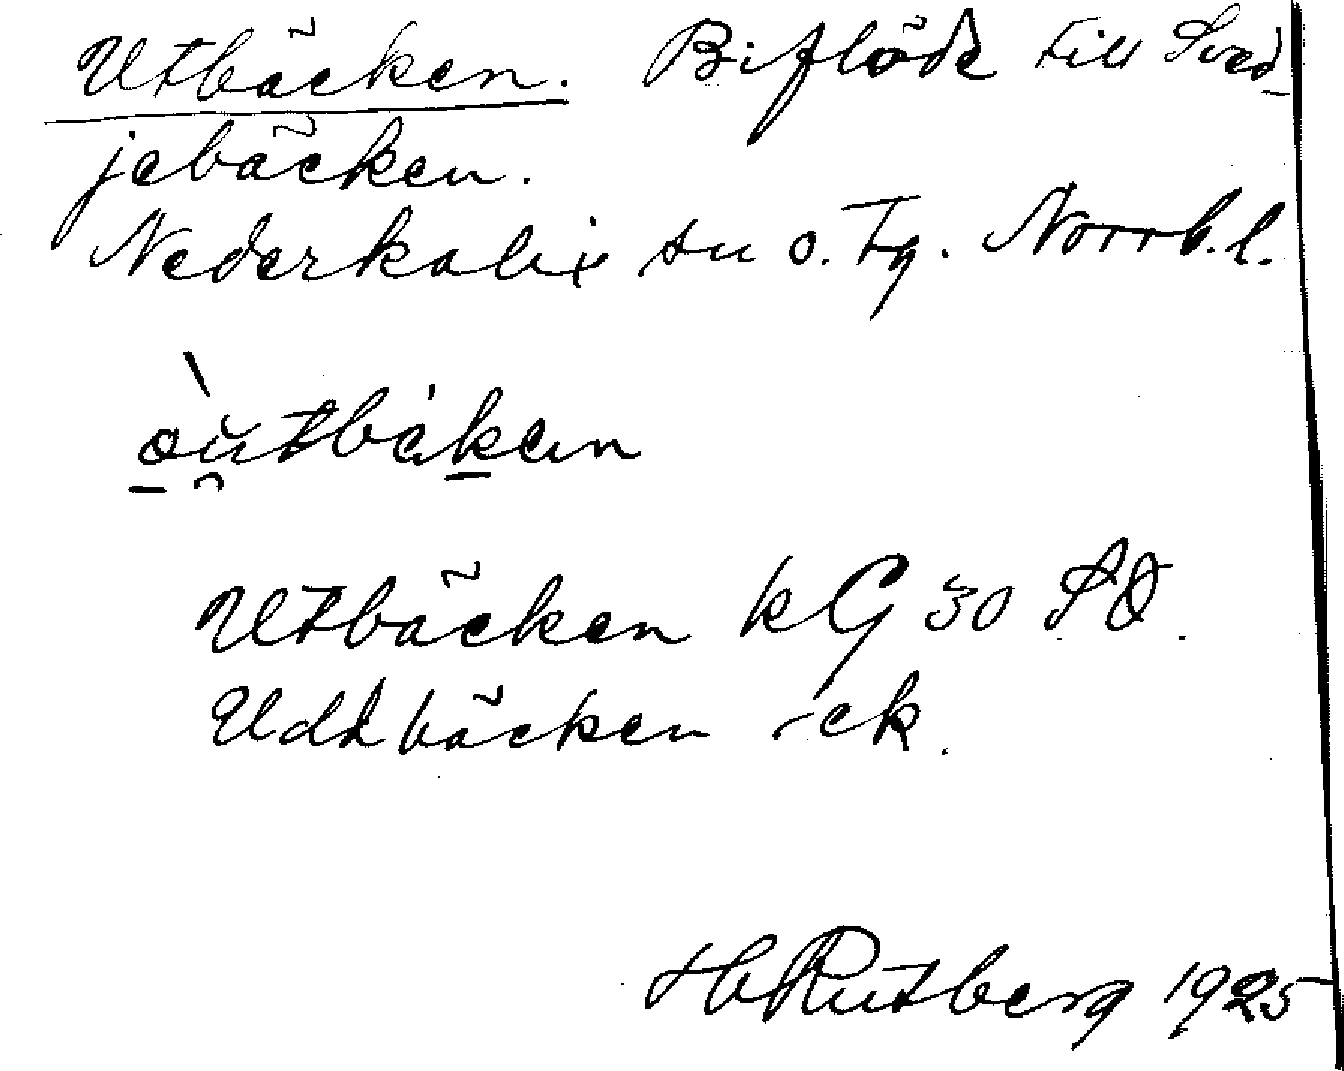 Utbäcken. Biflöde till Sved-
jebäcken.
Nederkalix sn o. tg. Norrb. l.
Utbäcken kG 30 SO.
Uddbäcken -ek.
H Rutberg 1925